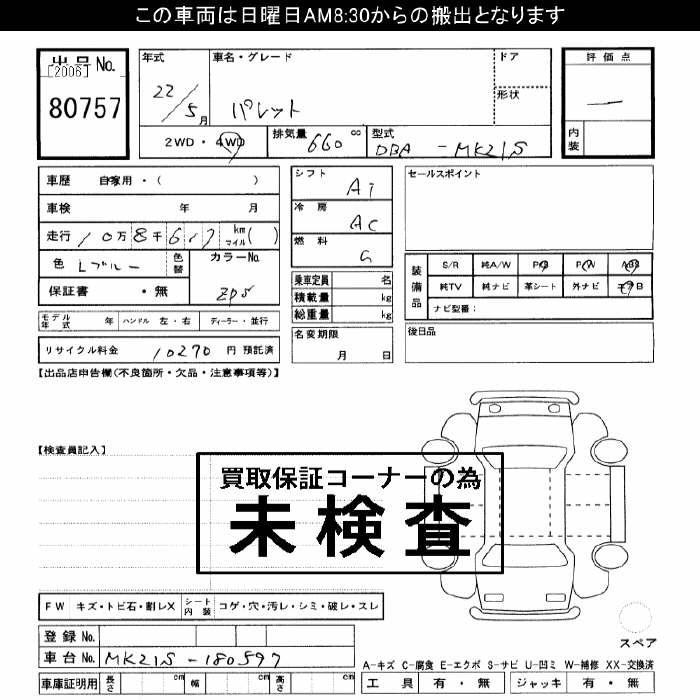 この車両は日曜日AM8:30からの搬出となります
出品No.
[2006]
80757
年式 22/5月
車名・グレード パレット
ドア
形状
2WD・4WD
排気量 660 cc
型式 DBA-MK21S
評価点
―
内装
車歴 自家用・( )
車検 年 月
走行 10万8千617 km マイル( )
色 Lブルー 色替 カラーNo. ZP5
保証書 ・無
モデル年式 年 ハンドル 左・右 ディーラー・並行
リサイクル料金 10270 円 預託済
シフト AT
冷房 AC
燃料 G
乗車定員 名
積載量 kg
総重量 kg
名変期限 月 日
セールスポイント
装備品 S/R 純A/W P/S P/W ABS
純TV 純ナビ 革シート 外ナビ エアB
ナビ型番:
後日品
【出品店申告欄(不良箇所・欠品・注意事項等)】
【検査員記入】
買取保証コーナーの為
未検査
FW キズ・トビ石・割レX シート内装 コゲ・穴・汚レ・シミ・破レ・スレ
登録No.
車台No. MK21S-180597
車庫証明用 長さ cm 幅 cm 高さ cm
スペア
A-キズ C-腐食 E-エクボ S-サビ U-凹ミ W-補修 XX-交換済
工具 有・無 ジャッキ 有・無